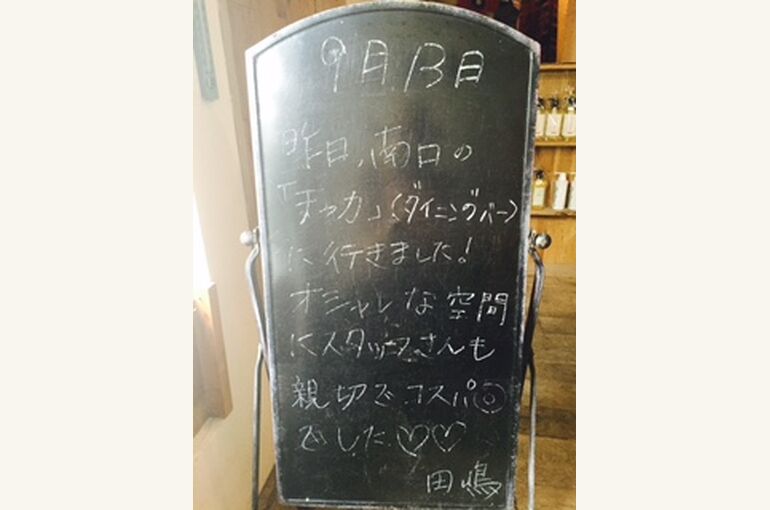 9月13日
昨日、南口の
「まっカ」(ダイニングバー)
に行きました!
オシャレな空間
にスタッフさんも
親切でコスパ◎
でした♡♡
田嶋